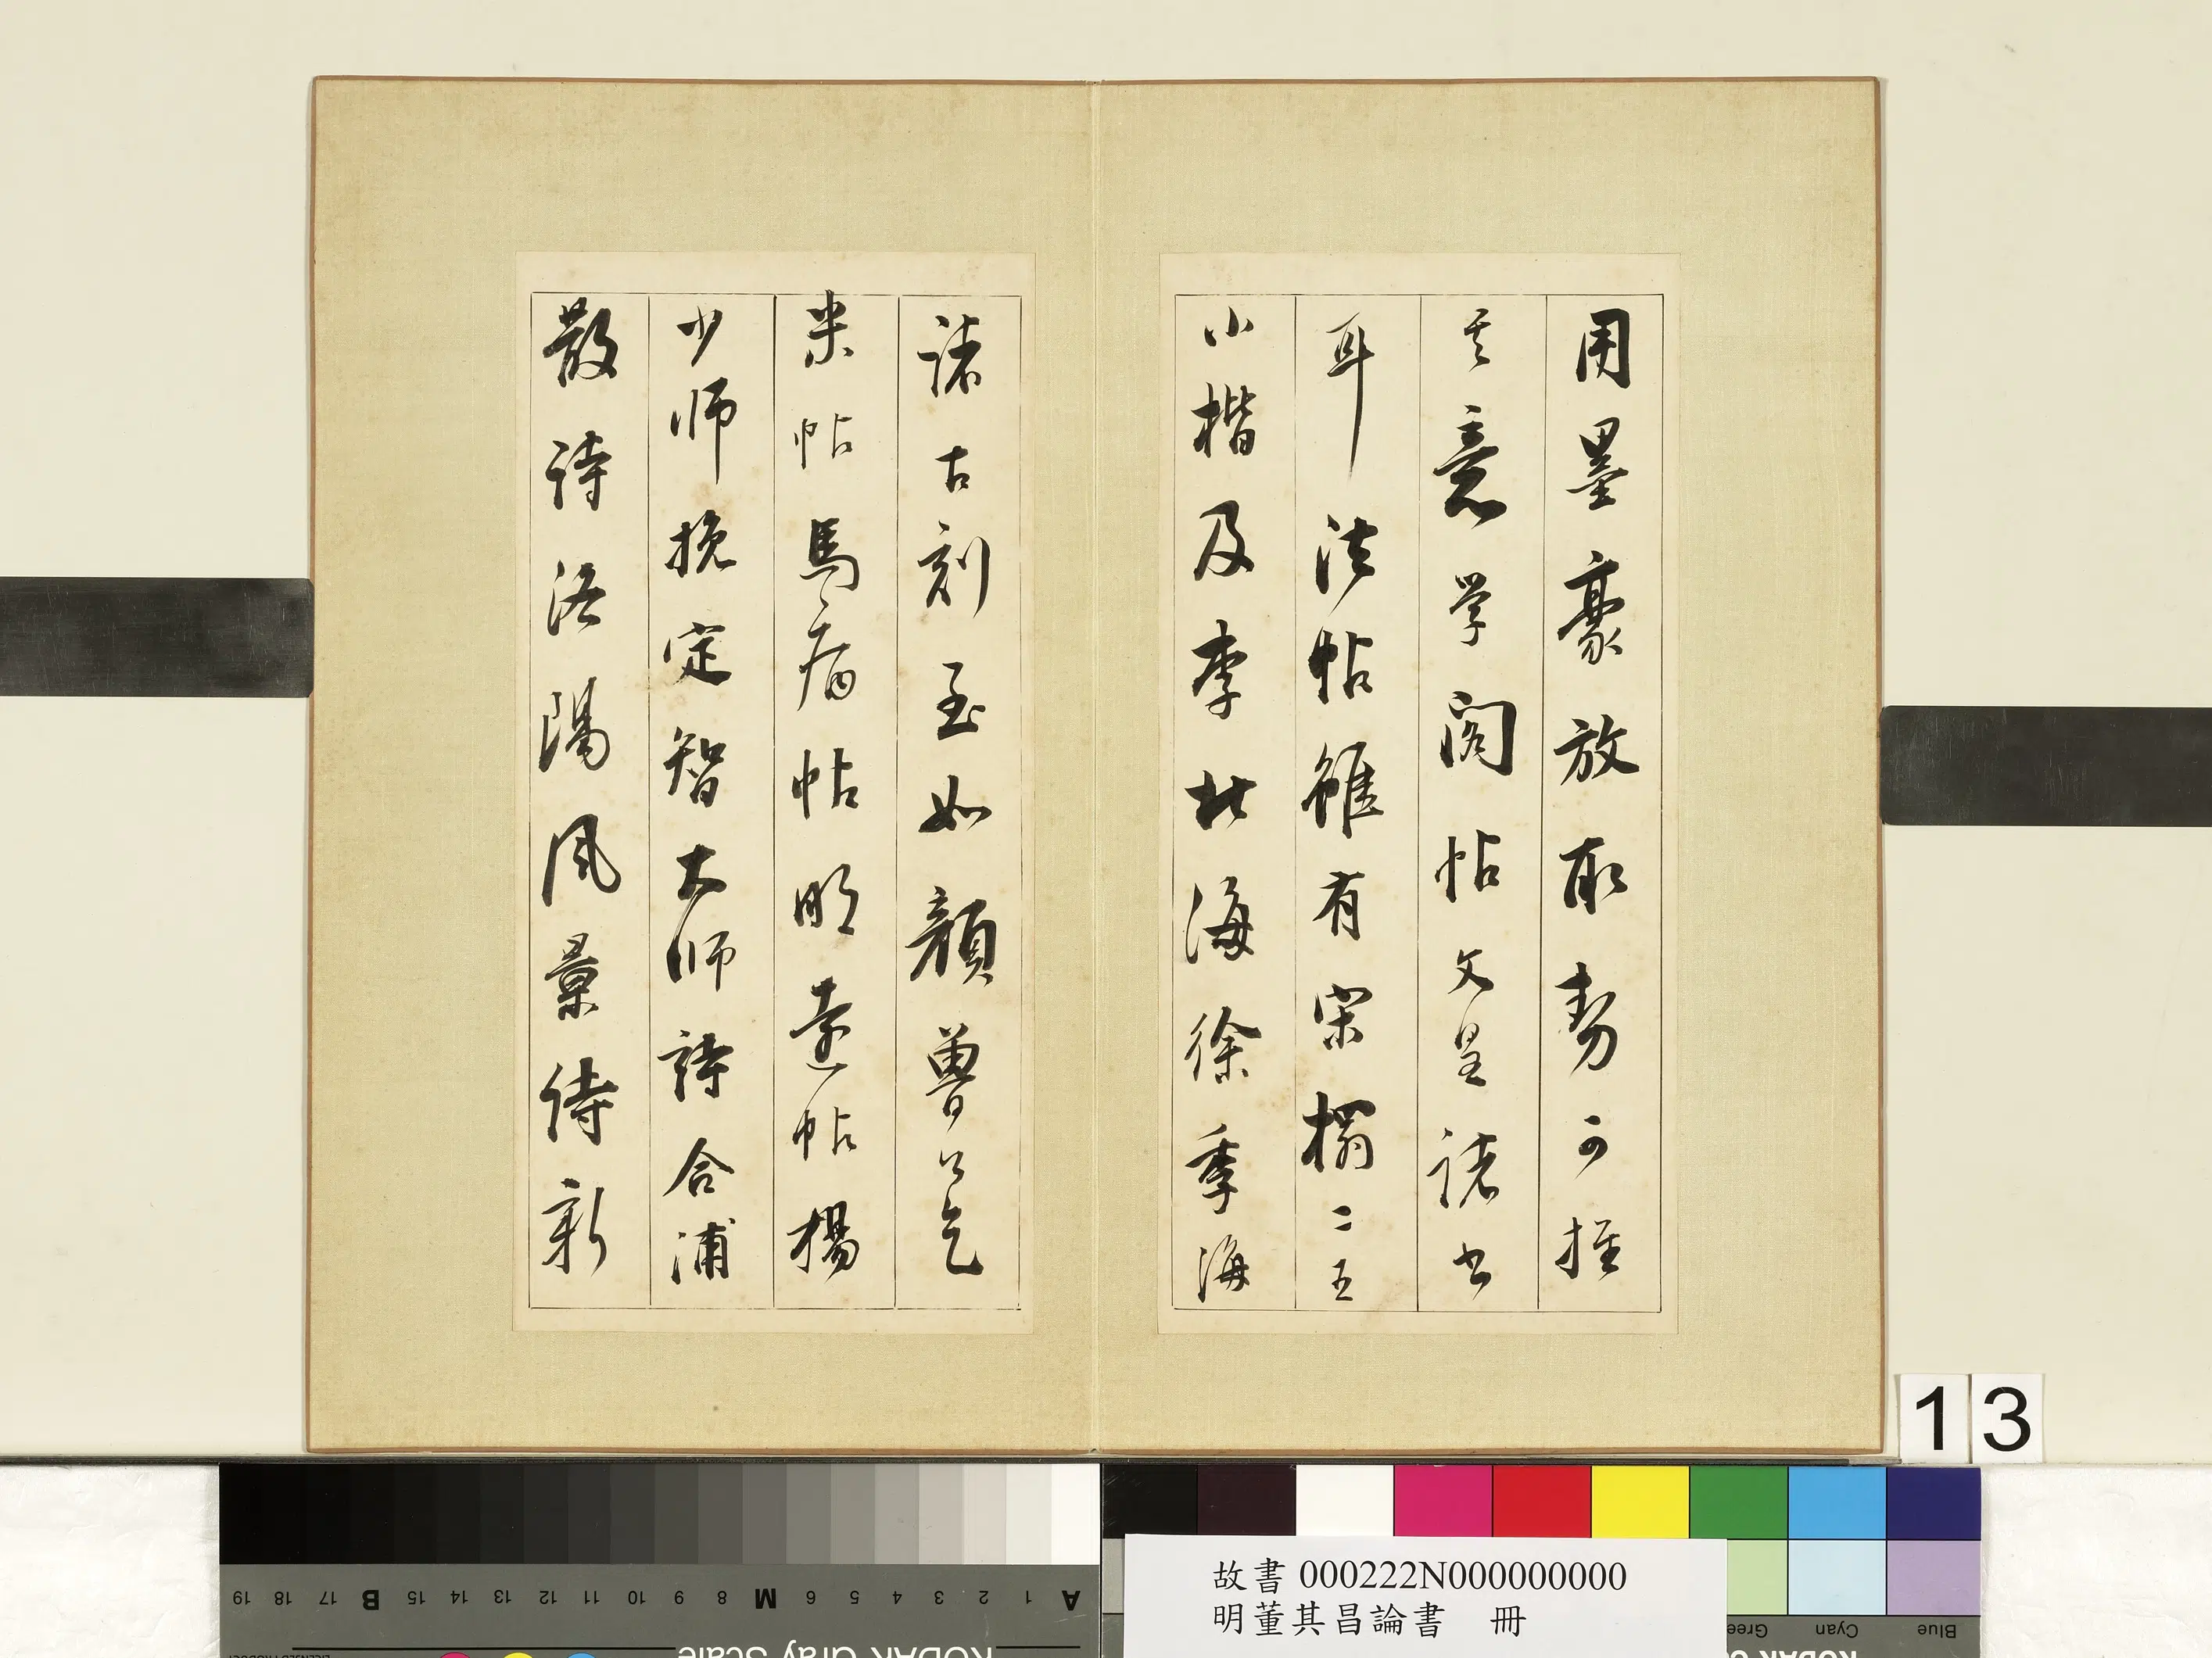 用墨豪放取勢可推
其意学閣帖文皇諸書
耳法帖雖有宋榻二五
小楷及李北海徐季海
諸古刻至如顏魯公乞
米帖馬病帖明遠帖楊
少师挽定智大师詩合浦
散詩洛陽風景待新
13
故書 000222N000000000
明董其昌論書 冊
A 1 2 3 4 5 6 M 8 9 10 11 12 13 14 15 B 17 18 19
KODAK Gray Scale
Blue Cyan